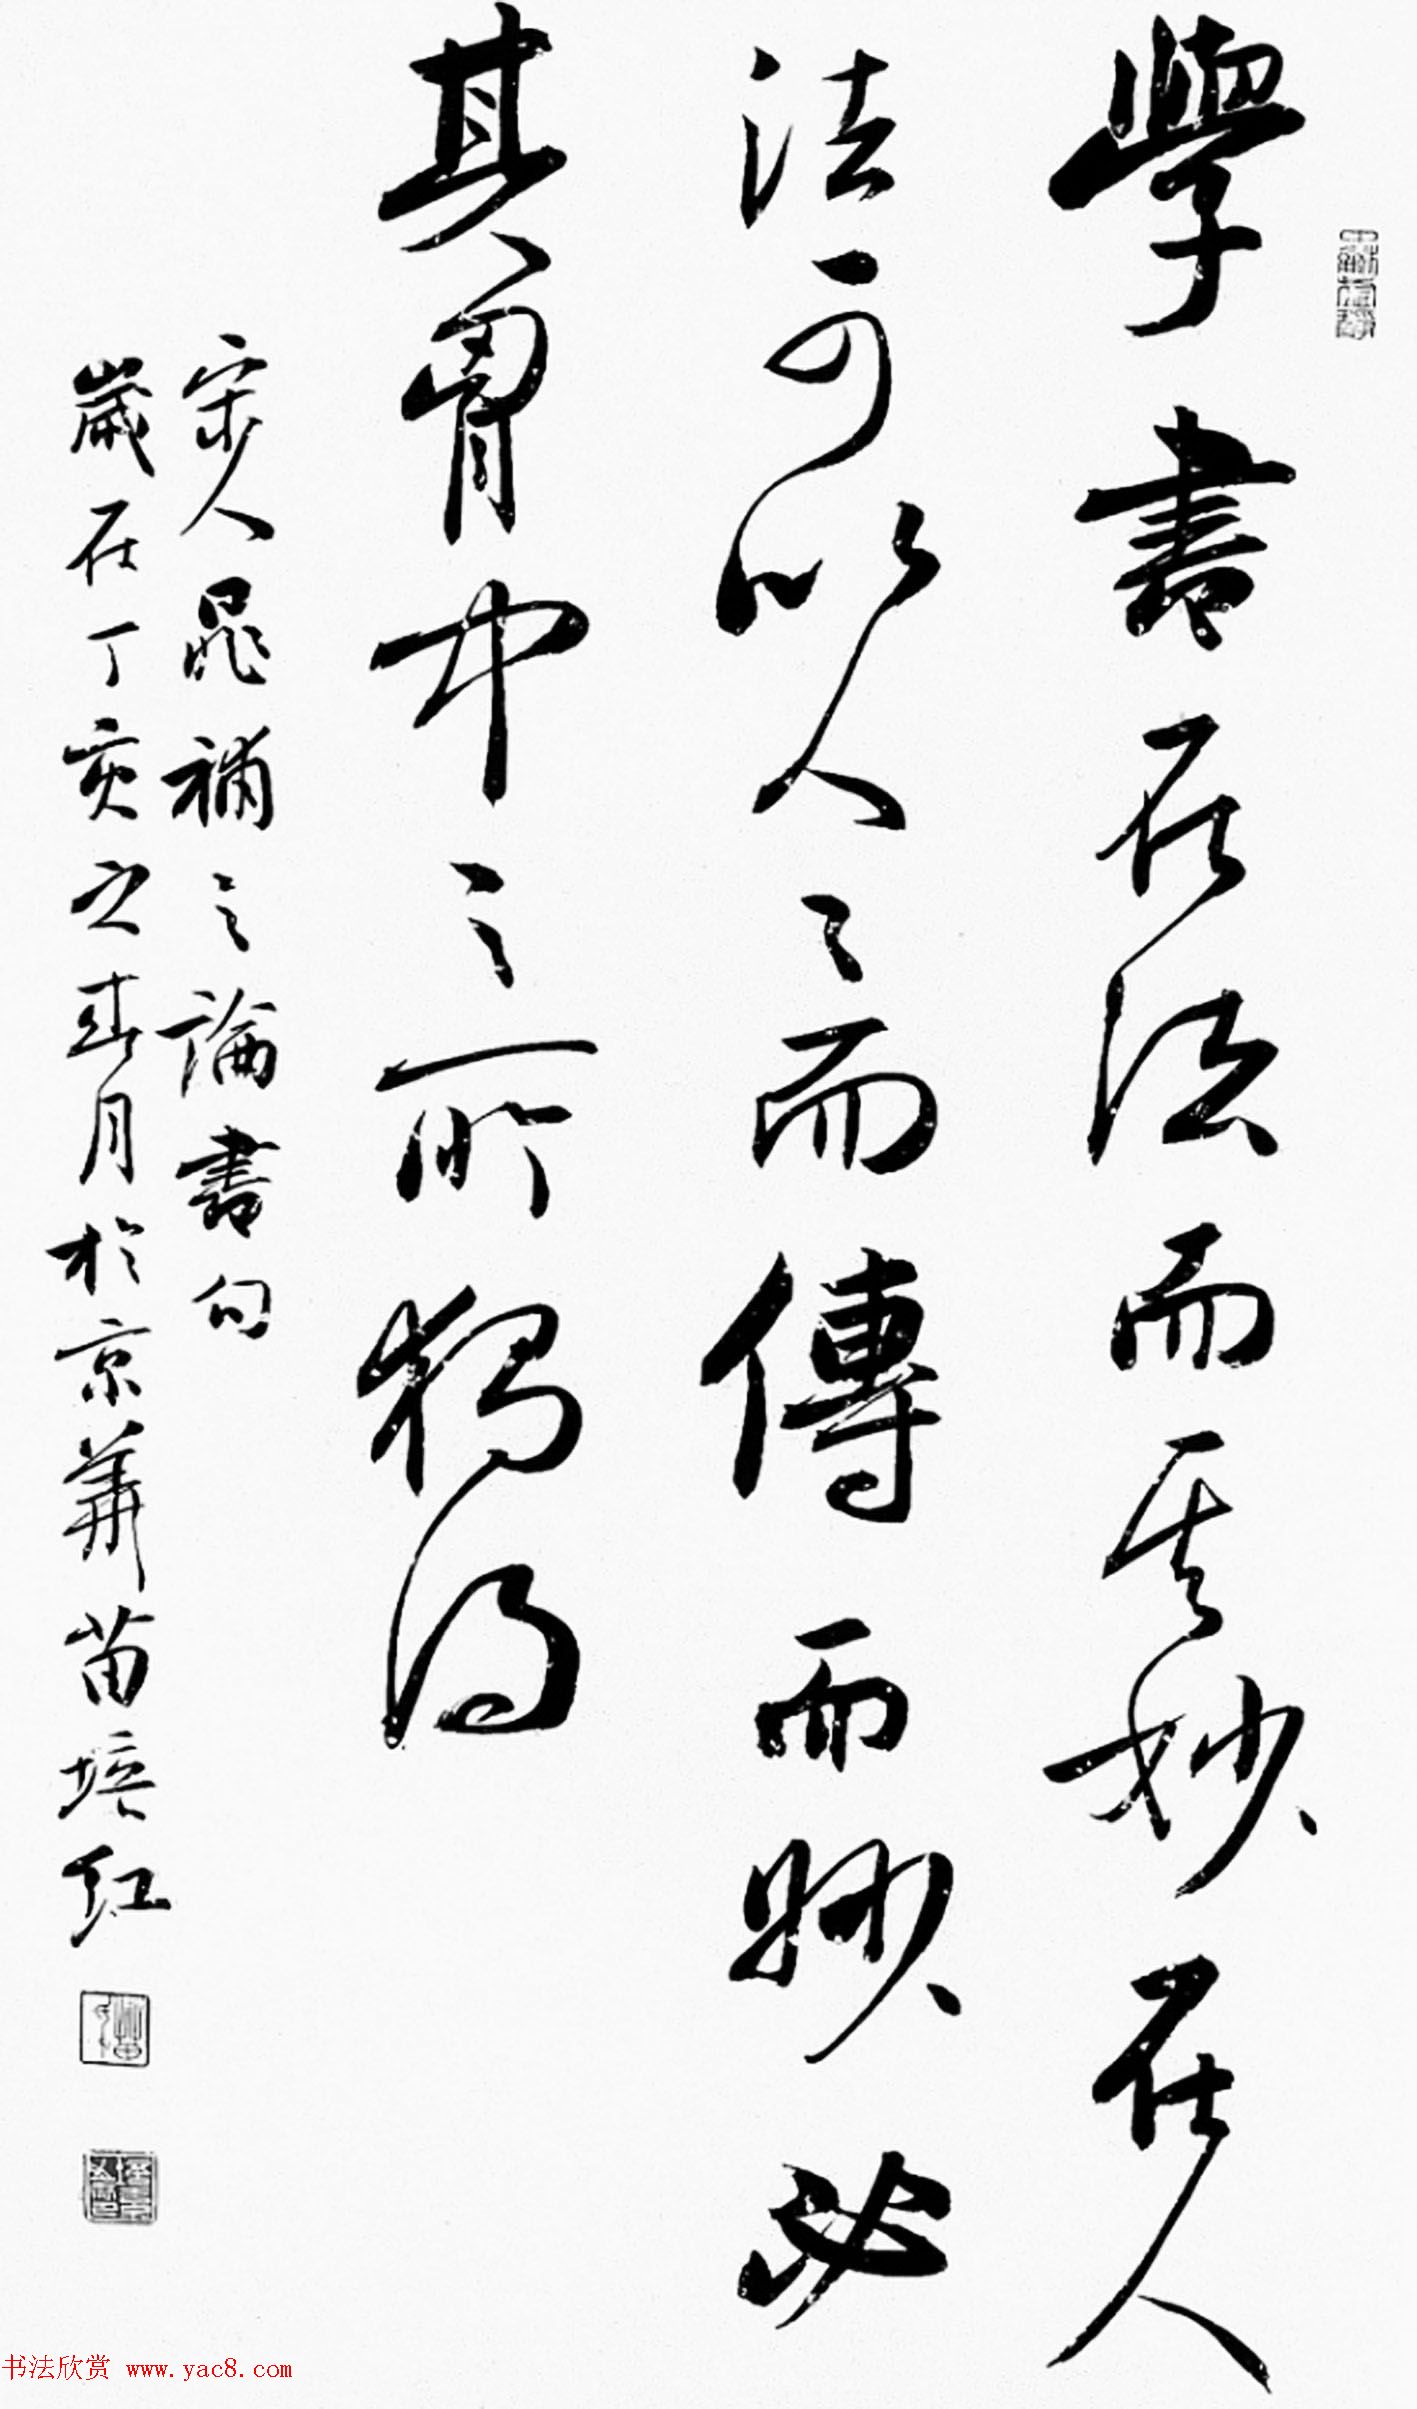 學書在法而其妙在人
法可以人人而傳而眇必
其胷中之所獨得
宋人晁補之論書句
歲在丁亥之春月於京華苗培红
书法欣赏 www.yac8.com